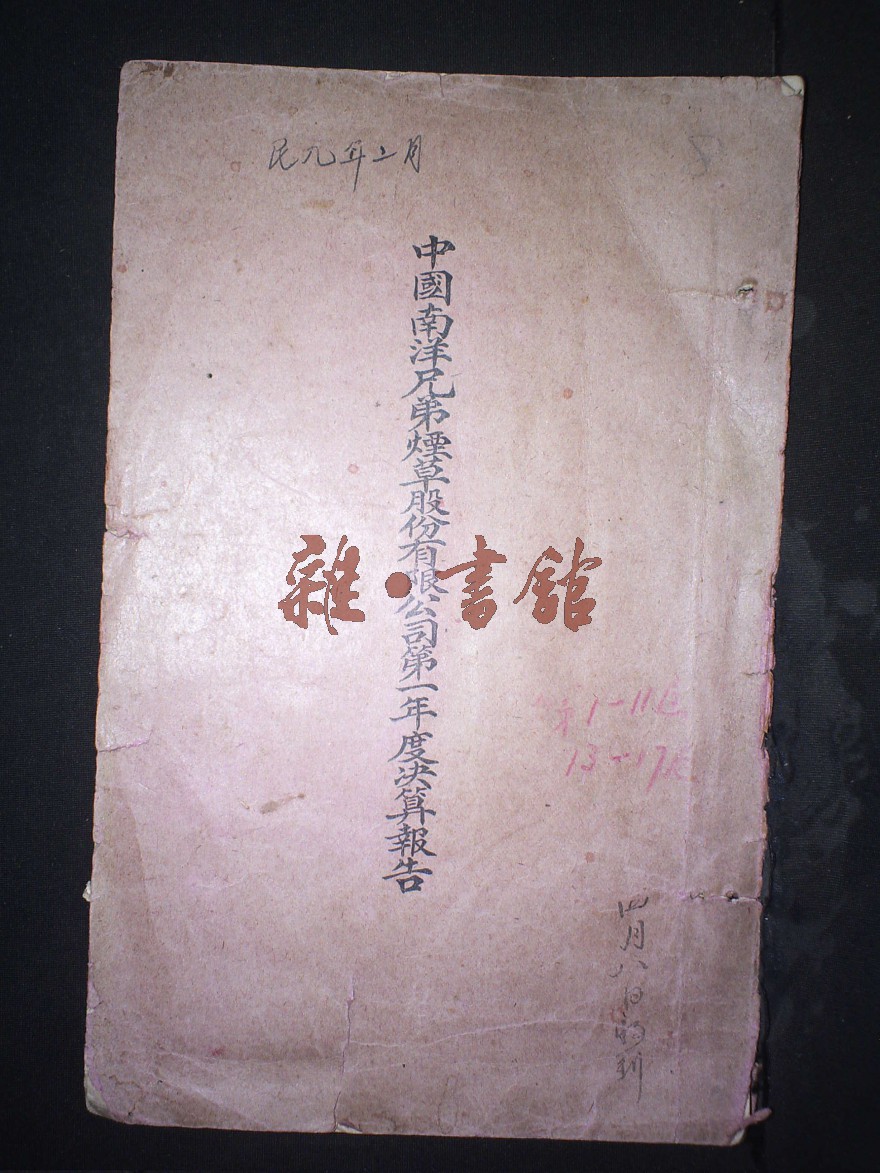 民九年二月
中國南洋兄弟煙草股份有限公司第一年度決算報告
雜·書館
1-11
13-17
四月八日